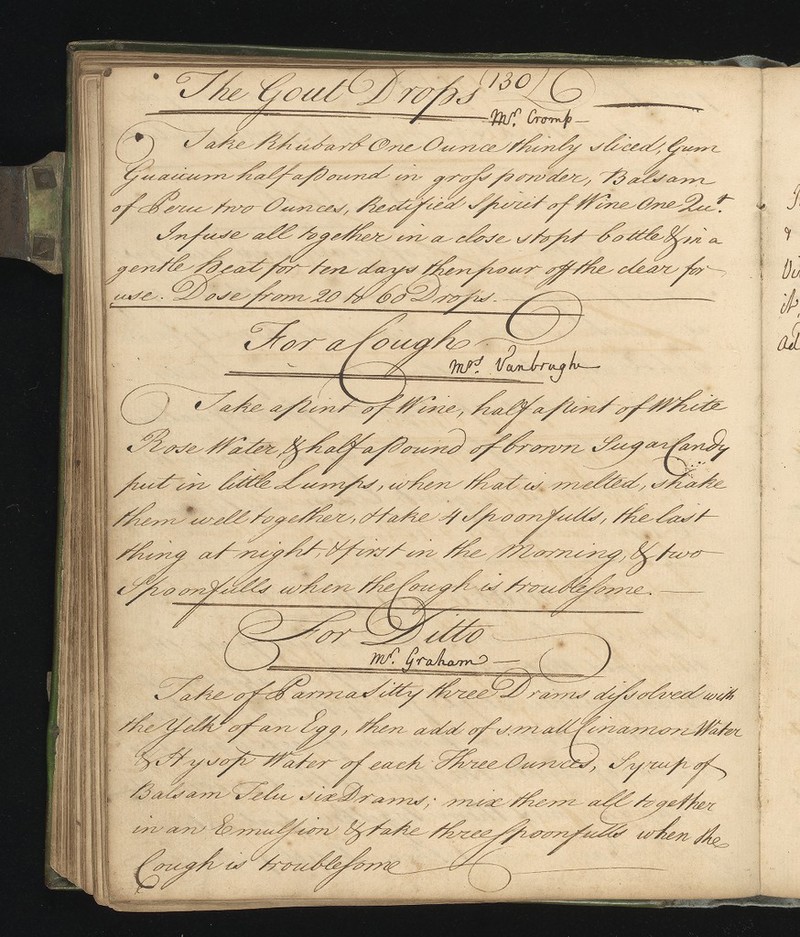 The Gout Drops 130
Mr. Cromp
Take Rhubarb One Ounce thinly sliced, Gum
Guaiium half a pound in gross powder, Balsam
of Peru two Ounces, Rectified Spirit of Wine One Qu.t
Infuse all together in a close stopt bottle & in a
gentle heat for ten days then pour off the clear for
use. Dose from 20 to 60 Drops.
For a Cough
Mrs. Vanbrugh
Take a pint of Wine, half a pint of White
Rose Water, & half a pound of brown Sugar Candy
put in little Lumps, when that is melted, shake
them well together, & take 4 Spoonfulls, the last
thing at night & first in the Morning, & two
Spoonfulls when the Cough is troublesome.
For Ditto
Mr. Graham
Take of Parmasitty three Drams dissolved with
the Yelk of an Egg, then add of small Cinamon Water
& Hysop Water of each Three Ounces, Syrup of
Balsam Telu six Drams; mix them all together
in an Emulsion & take three spoonfulls when the
Cough is troublesome